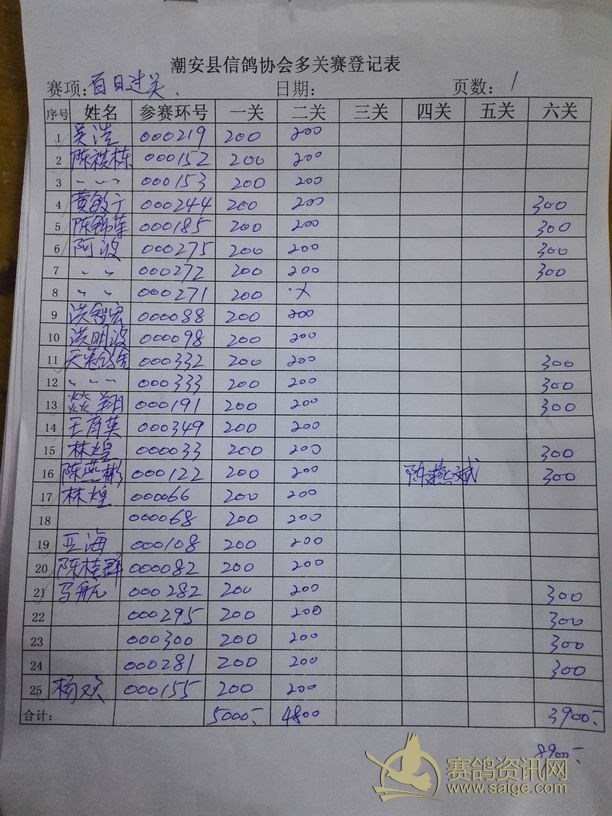 潮安县信鸽协会多关赛登记表
赛项:百日过关 日期: 页数:1
序号 姓名 参赛环号 一关 二关 三关 四关 五关 六关
1 吴浩 000219 200 200
2 陈祺栋 000152 200 200
3 〃 〃 〃 000153 200 200
4 黄敏 000244 200 200 300
5 陈锦荣 000185 200 200 300
6 阿波 000275 200 200 300
7 〃 〃 000272 200 200 300
8 〃 〃 000271 200 ·X
9 洪 宏 000088 200 200
10 洪明波 000098 200 200
11 000332 200 200 300
12 〃 〃 〃 000333 200 200 300
13 焱翔 000191 200 200 300
14 王育英 000349 200 200
15 林煌 000033 200 200 300
16 陈燕彬 000122 200 200 陈燕斌 300
17 林煌 000066 200 200
18 000068 200 200
19 亚海 000108 200 200
20 陈桂群 000082 200 200
21 马航 000282 200 200 300
22 000295 200 200 300
23 000300 200 200 300
24 000281 200 200 300
25 杨欢 000155 200 200
合计: 5000- 4800 3900-
8900-
赛鸽资讯网
www.saige.com